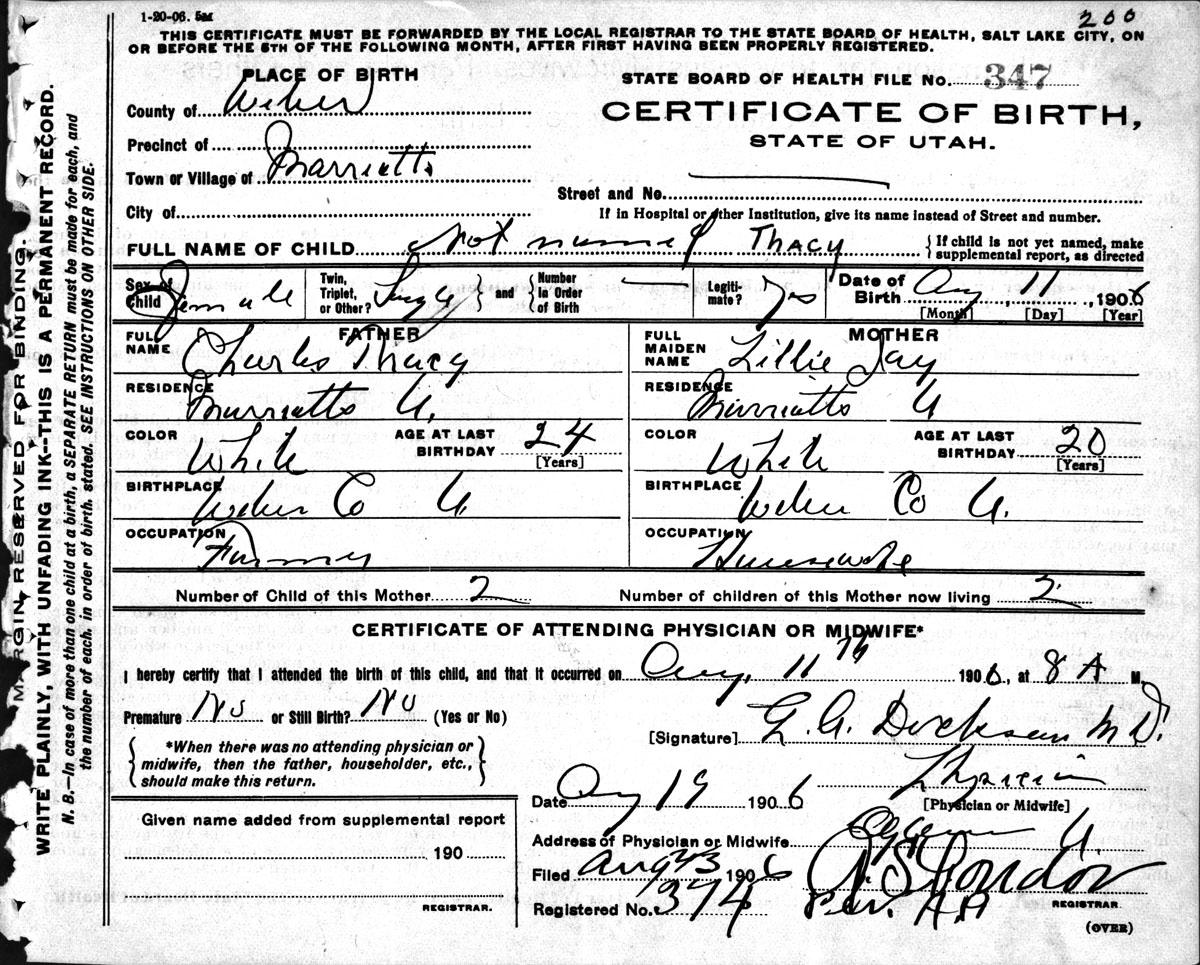 1-20-06. 5M
200
THIS CERTIFICATE MUST BE FORWARDED BY THE LOCAL REGISTRAR TO THE STATE BOARD OF HEALTH, SALT LAKE CITY, ON
OR BEFORE THE 5TH OF THE FOLLOWING MONTH, AFTER FIRST HAVING BEEN PROPERLY REGISTERED.
PLACE OF BIRTH
STATE BOARD OF HEALTH FILE No. 347
County of Weber
CERTIFICATE OF BIRTH,
STATE OF UTAH.
Precinct of
Town or Village of Marriotts
Street and No.
City of
If in Hospital or other Institution, give its name instead of Street and number.
FULL NAME OF CHILD Not named THACY
{If child is not yet named, make
supplemental report, as directed
Sex of Child Female
Twin, Triplet, or Other? Single } and { Number in Order of Birth
Legitimate? Yes
Date of Birth Aug, 11, 1906
[Month] [Day] [Year]
FATHER
MOTHER
FULL NAME Charles Thacy
FULL MAIDEN NAME Lillie Jay
RESIDENCE Marriotts U.
RESIDENCE Marriotts U
COLOR White
AGE AT LAST BIRTHDAY 24 [Years]
COLOR White
AGE AT LAST BIRTHDAY 20 [Years]
BIRTHPLACE Weber Co U
BIRTHPLACE Weber Co U.
OCCUPATION Farmer
OCCUPATION Housewife
Number of Child of this Mother 2
Number of children of this Mother now living 2
CERTIFICATE OF ATTENDING PHYSICIAN OR MIDWIFE*
I hereby certify that I attended the birth of this child, and that it occurred on Aug, 11th 1906, at 8 A M.
Premature No or Still Birth? No (Yes or No)
[Signature] G. A. Dickson M D.
{*When there was no attending physician or
midwife, then the father, householder, etc.,
should make this return.}
Physician
[Physician or Midwife]
Date Aug 19 1906
Address of Physician or Midwife Ogden U.
Given name added from supplemental report
190
REGISTRAR.
Filed Aug 23 1906
Registered No. 374
Per.
REGISTRAR.
(OVER)
MARGIN RESERVED FOR BINDING.
WRITE PLAINLY, WITH UNFADING INK--THIS IS A PERMANENT RECORD.
N. B.—In case of more than one child at a birth, a SEPARATE RETURN must be made for each, and
the number of each, in order of birth, stated. SEE INSTRUCTIONS ON OTHER SIDE.